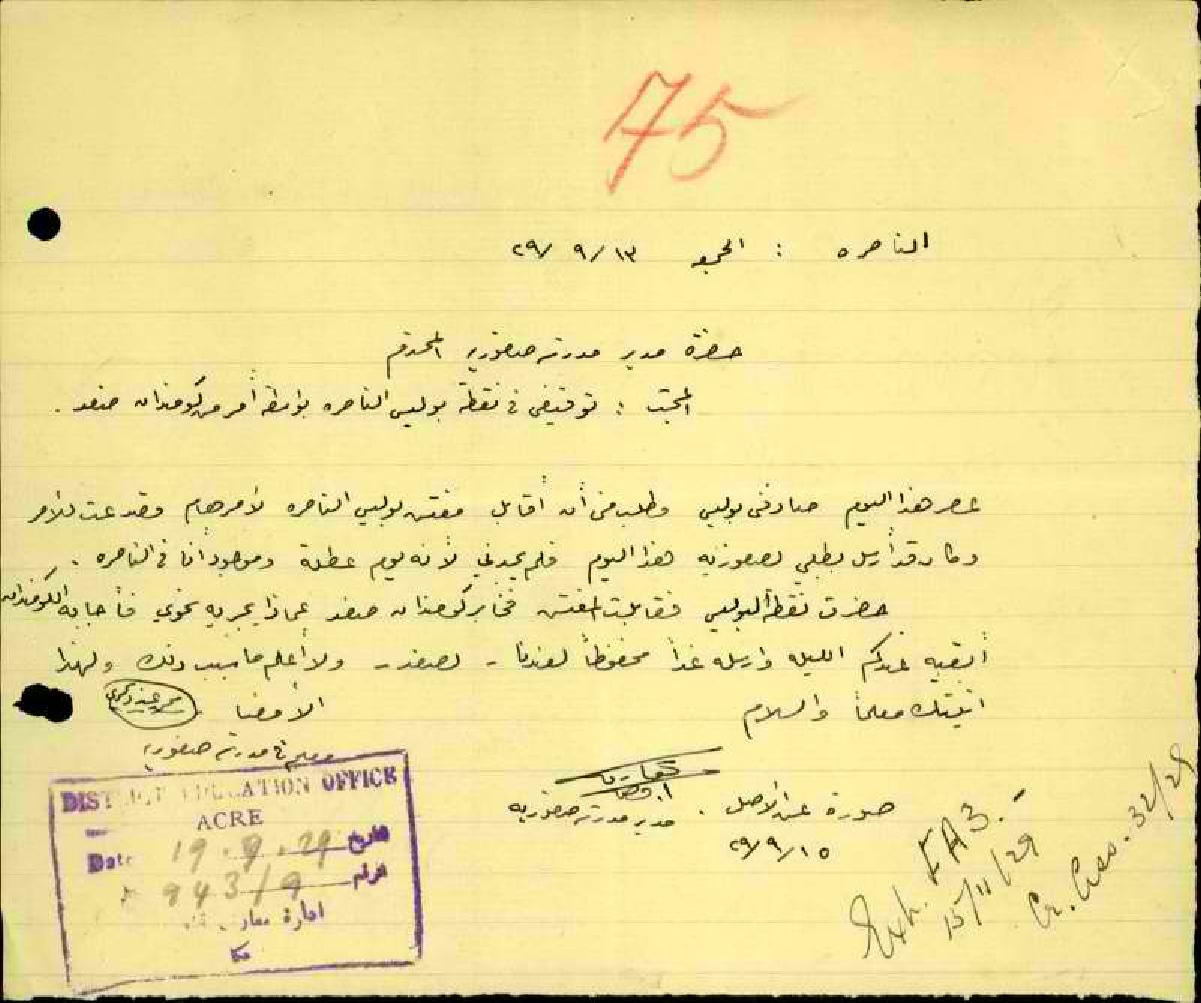 75
الناصره : الجمعه ١٣/ ٩/ ٢٩
حضرة مدير مدرسة صفوريه المحترم
المبحث : توقيفي في نقطة بوليس الناصره بواسطة أمر من كومندان صفد .
عصر هذا اليوم صادفني بوليس وطلب مني أن أقابل مفتش بوليس الناصره لأمر هام وقد عت للامر
وكان قد أرسل بطلبي لصفوريه هذا اليوم فلم يجدني لأنه يوم عطلة وموجود أنا في الناصره .
حضرت نقطة البوليس فقابلت المفتش فخابر كومندان صفد عماذا يجريه نحوي فأجابه الكومندان
أبقيه عندكم الليله وارسله غداً محفوظاً لعندنا - لصفد - ولا أعلم ما سبب ذلك ولهذا
اتيتك معلماً والسلام
الأمضا
معلم في مدرسة صفوريه
صورة عن الأصل .
مدير مدرسة صفوريه
٢٩/٩/١٥
DISTRICT EDUCATION OFFICE
ACRE
Date 19.9.29 تاريخ
943/9 الرقم
ادارة معارف
عكا
Exh. EA3.
15/11/29
Cr. Ass. 32/29